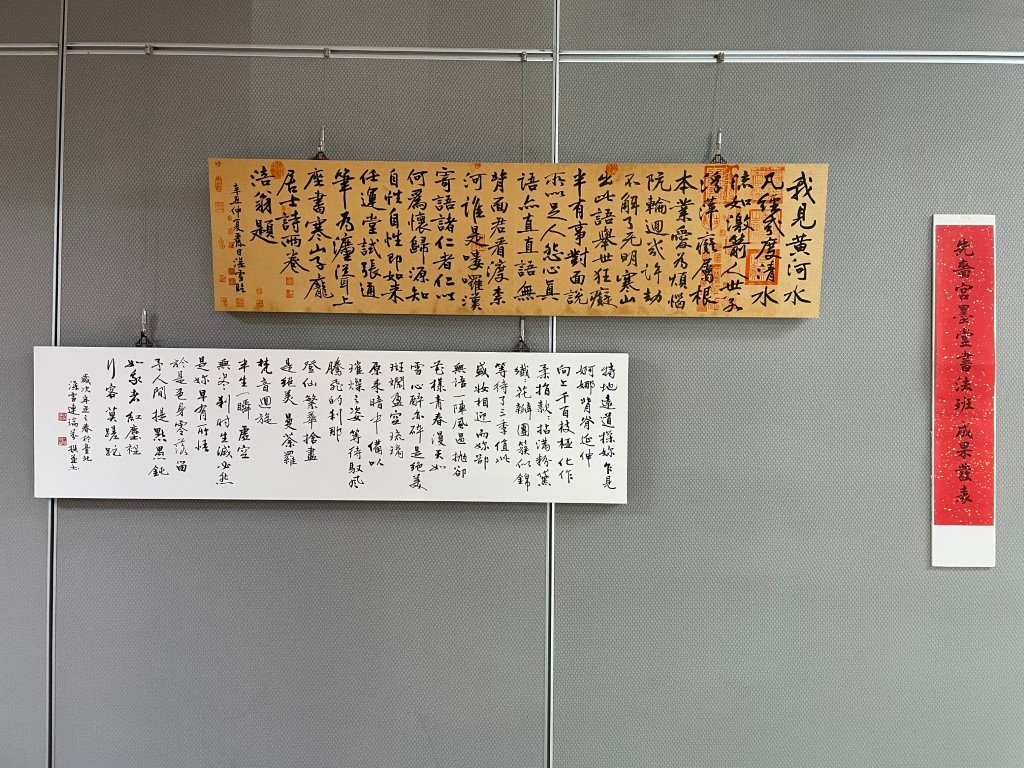 我見黃河水
凡經幾度清水
流如激箭人世若
浮萍癡屬根
本業愛為煩惱
阮輪迴幾許劫
不解了无明寒山
出此語舉世狂癡
半有事對面說
所以足人怨心真
語亦直直語無
背面君看渡奈
河誰是嘍羅漢
寄語諸仁者仁以
何為懷歸源知
自性自性即如来
任運堂試張通
筆為法聳上
座書寒山子龐
居士詩兩卷
涪翁題
辛丑仲夏
特地遠道探妳乍見
婀娜背脊延伸
向上千百枝椏化作
柔指款款拈滿粉黛
纖花瓣團簇似錦
等待了三季值此
盛妝相迎而妳卻
無語一陣風過拋卻
花樣青春漫天如
雪心醉亦碎是絕美
斑斕盈空琉璃
原来暗中備以
璀燦之姿等待馭風
騰飛的剎那
登仙繁華捨盡
是絕美曼荼羅
梵音迴旋
半生一瞬虛空
無岑剎時生滅必然
是妳早有所悟
於是芭身零落留
予人間提點愚鈍
如我者紅塵裡
行客莫蹉跎
歲次辛丑之春於臺北
先嗇宮墨堂書法班成果發表